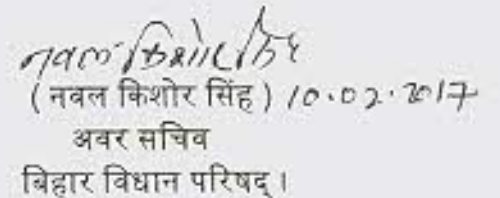 नवल किशोर सिंह
(नवल किशोर सिंह) 10.02.2017
अवर सचिव
बिहार विधान परिषद्।